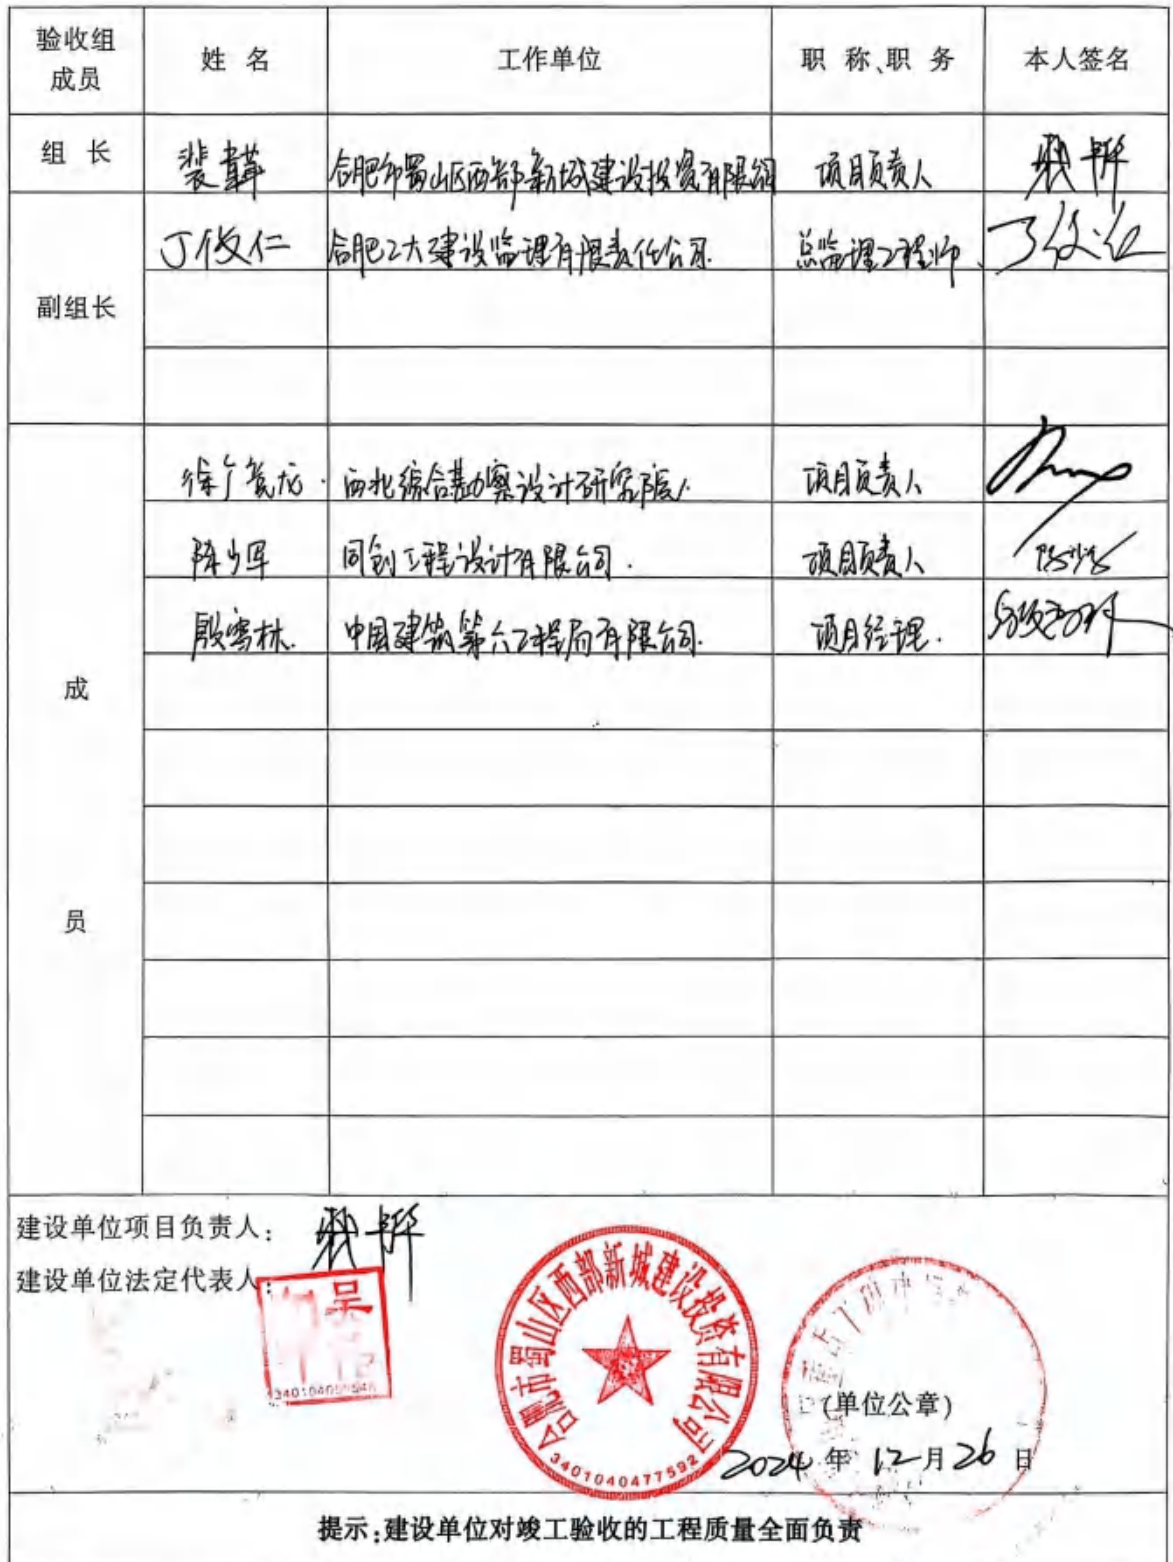 验收组成员 姓 名 工作单位 职 称、职 务 本人签名
组 长 裴 合肥市蜀山区西部新城建设投资有限公司 项目负责人
丁俊仁 合肥工大建设监理有限责任公司. 总监理工程师
副组长
徐 龙 西北综合勘察设计研究院 项目负责人
陈少军 同创工程设计有限公司. 项目负责人
殷雪林. 中国建筑第六工程局有限公司. 项目经理.
成
员
建设单位项目负责人:
建设单位法定代表人:
吴
合肥市蜀山区西部新城建设投资有限公司
3401040477592
(单位公章)
2024 年 12 月 26 日
提示:建设单位对竣工验收的工程质量全面负责